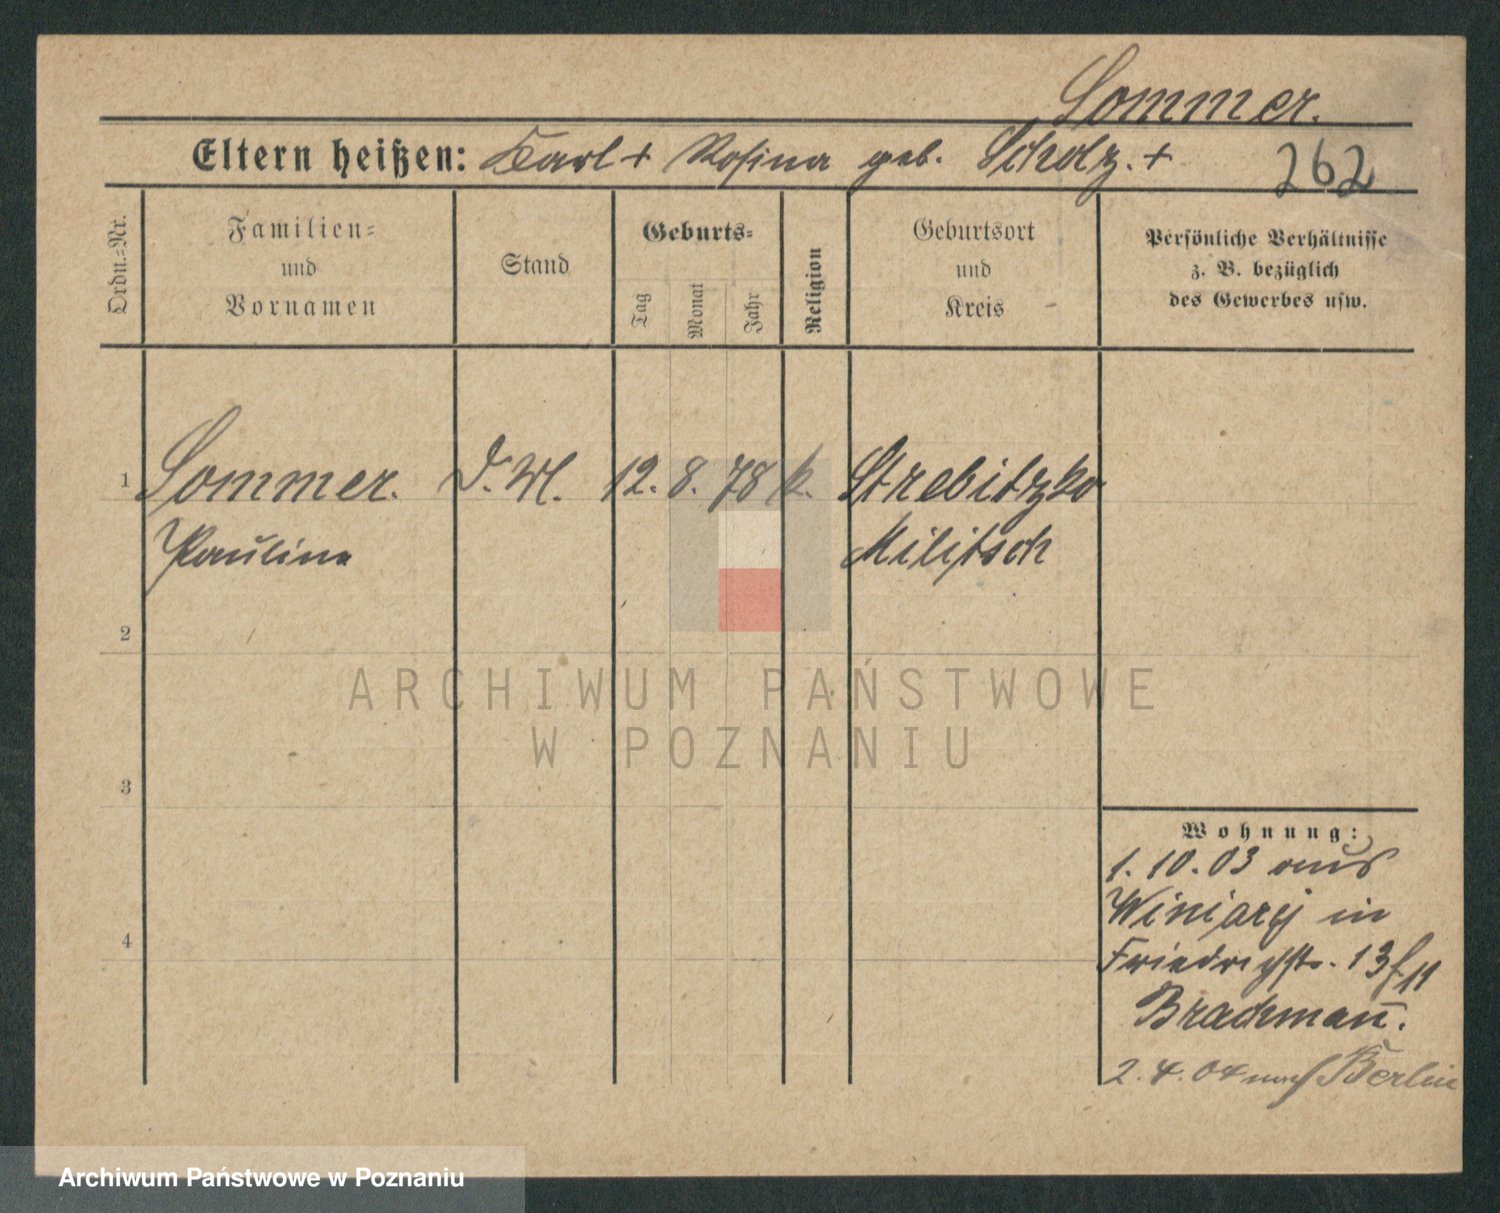 Sommer.
Eltern heißen: Karl + Rosina geb. Scholz. +
262
Ordn.-Nr.
Familien-
und
Vornamen
Stand
Geburts-
Tag
Monat
Jahr
Religion
Geburtsort
und
Kreis
Persönliche Verhältnisse
z. B. bezüglich
des Gewerbes usw.
1 Sommer. D. M. 12. 8. 78 k. Strebitzko
Pauline Militsch
2
3
4
Wohnung:
1. 10. 03 aus
Winiary in
Friedrichstr. 13
Brackmañ.
2. 4. 04 nach Berlin
ARCHIWUM PAŃSTWOWE
W POZNANIU
Archiwum Państwowe w Poznaniu